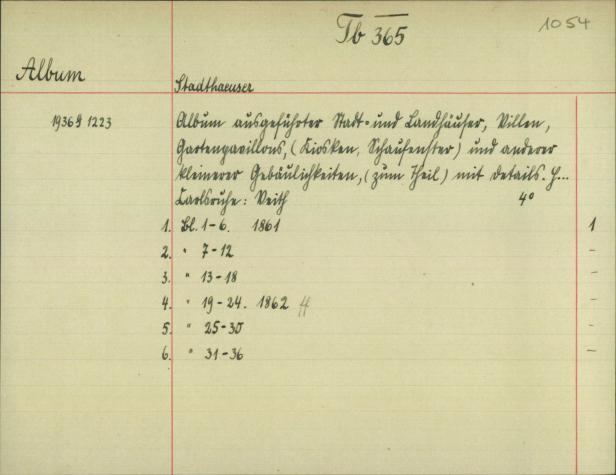 Tb 365
1054
Album
Stadthaeuser
1936 G 1223
Album ausgeführter Stadt- und Landhäuser, Villen,
Gartenpavillons, (Kiosken, Schaufenster) und anderer
kleinerer Gebäulichkeiten, (zum Theil) mit Details. H...
Carlsruhe: Veith 4°
1. Bl. 1-6. 1861 1
2. " 7-12 -
3. " 13-18 -
4. " 19-24. 1862 ff -
5. " 25-30 -
6. " 31-36 -